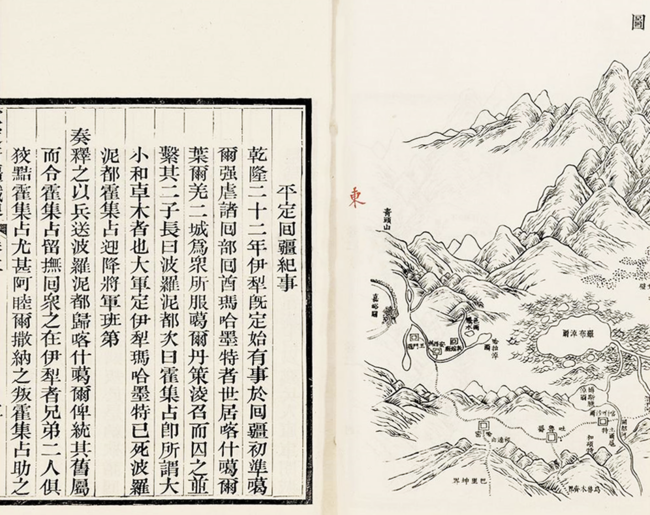 圖
平定囘疆紀事
乾隆二十二年伊犁旣定始有事於囘疆初準噶
爾强虐諸囘部囘酋瑪哈墨特者世居喀什噶爾
葉爾羌二城爲衆所服噶爾丹策淩召而囚之並
繫其二子長曰波羅泥都次曰霍集占卽所謂大
小和卓木者也大軍定伊犁瑪哈墨特已死波羅
泥都霍集占迎降將軍班第
奏釋之以兵送波羅泥都歸喀什噶爾俾統其舊屬
而令霍集占留撫囘衆之在伊犁者兄弟二人俱
狡黠霍集占尤甚阿睦爾撒納之叛霍集占助之
東
嘉峪關
哈拉淖爾
羅布淖爾
吐魯番
巴里坤界
烏魯木齊界